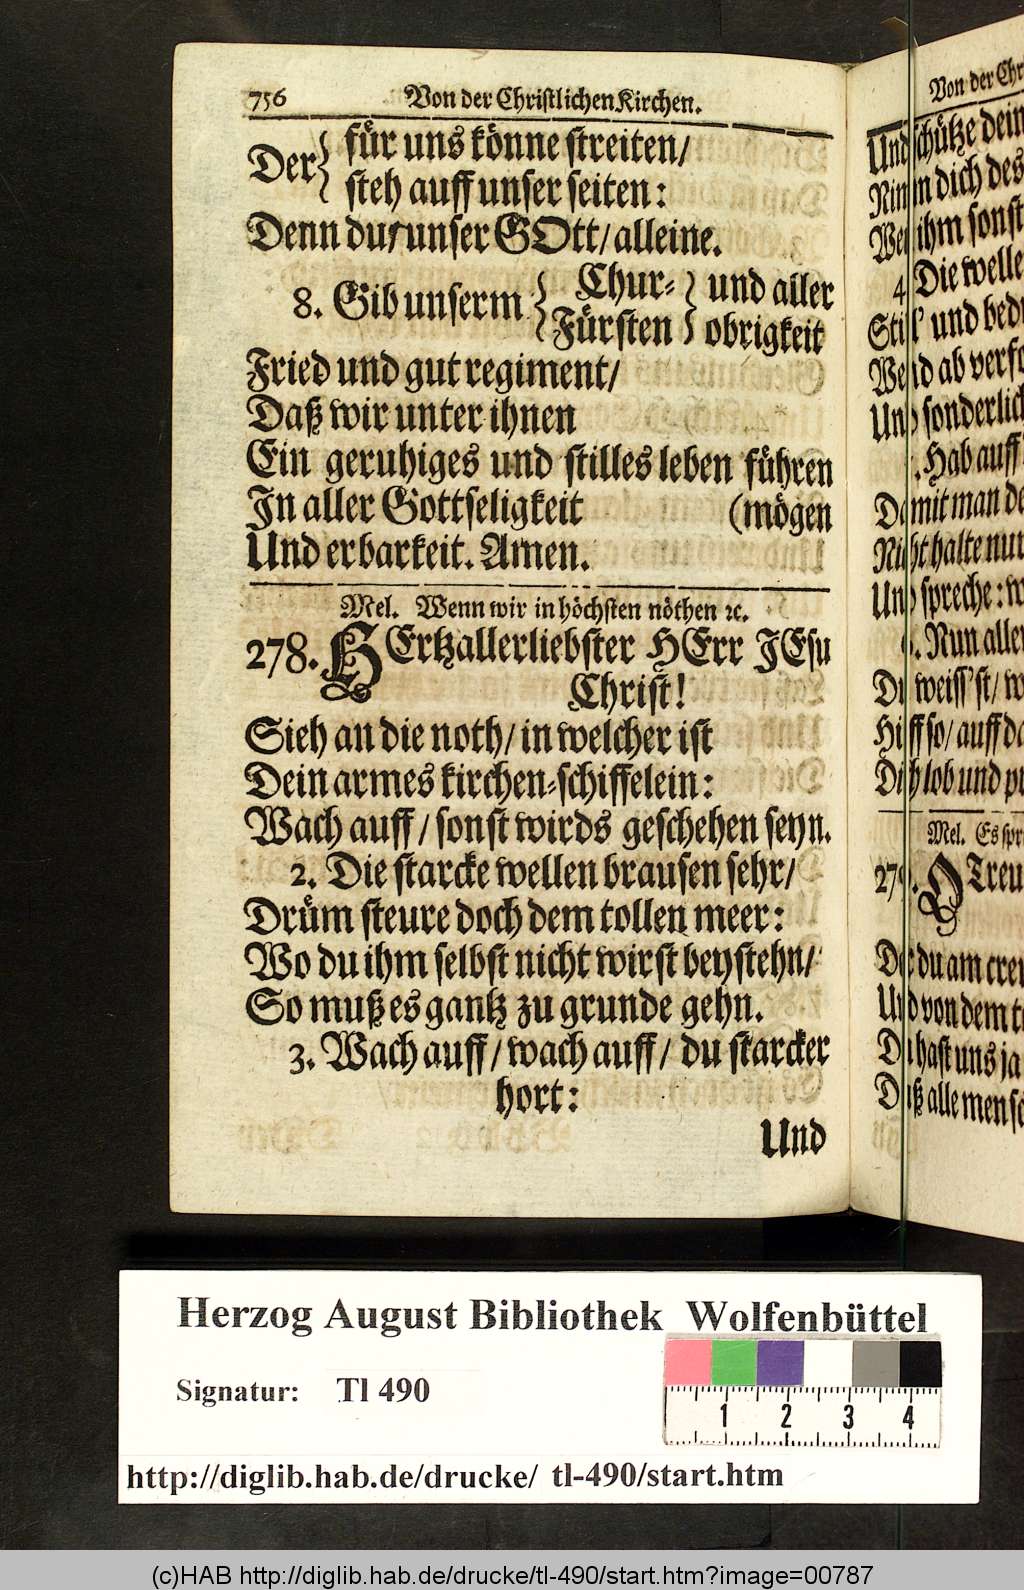 756 Von der Christlichen Kirchen.
Der { für uns könne streiten/
steh auff unser seiten:
Denn du/ unser GOtt/ alleine.
8. Gib unserm { Chur- } und aller
Fürsten } obrigkeit
Fried und gut regiment/
Daß wir unter ihnen
Ein geruhiges und stilles leben führen
In aller Gottseligkeit (mögen
Und erbarkeit. Amen.
Mel. Wenn wir in höchsten nöthen ꝛc.
278. HErtzallerliebster HErr JEsu
Christ!
Sieh an die noth/ in welcher ist
Dein armes kirchen-schiffelein:
Wach auff/ sonst wirds geschehen seyn.
2. Die starcke wellen brausen sehr/
Drüm steure doch dem tollen meer:
Wo du ihm selbst nicht wirst beystehn/
So muß es gantz zu grunde gehn.
3. Wach auff/ wach auff/ du starcker
hort:
Und
Von der
Und schütze
dich des
ihm sonst
4. Die welle
und
ab
Und sonderlich
. Hab auff
Damit man
Nicht halte nur
Und spreche:
. Nun
weiss' st/
so/ auff
lob und
Mel. Es
Treu
du am
Und von dem
hast uns ja
alle
Herzog August Bibliothek Wolfenbüttel
Signatur: Tl 490
1 2 3 4
http://diglib.hab.de/drucke/ tl-490/start.htm
(c)HAB http://diglib.hab.de/drucke/tl-490/start.htm?image=00787